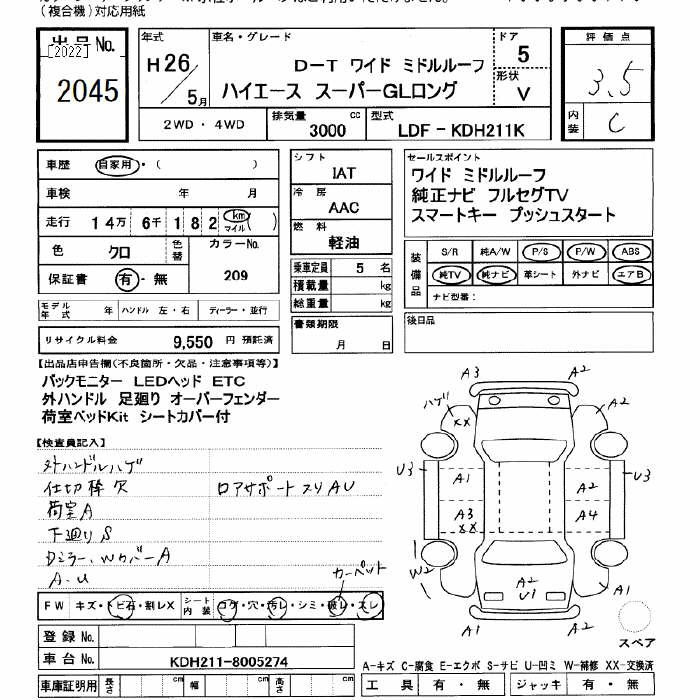 (複合機)対応用紙
出品No.
[2022]
2045
年式
H26/5月
車名・グレード
D-T ワイド ミドルルーフ
ハイエース スーパーGLロング
ドア
5
形状
V
評価点
3.5
内装
C
2WD・4WD
排気量
3000
cc
型式
LDF-KDH211K
車歴
自家用・( )
車検 年 月
走行 14万 6千 182 km マイル( )
色
クロ
色替
カラーNo.
209
保証書 有・無
モデル年式 年 ハンドル 左・右 ディーラー・並行
リサイクル料金 9,550 円 預託済
シフト
IAT
冷房
AAC
燃料
軽油
乗車定員 5 名
積載量 kg
総重量 kg
書類期限
月 日
セールスポイント
ワイド ミドルルーフ
純正ナビ フルセグTV
スマートキー プッシュスタート
装備品
S/R 純A/W P/S P/W ABS
純TV 純ナビ 革シート 外ナビ エアB
ナビ型番:
後日品
【出品店申告欄(不良箇所・欠品・注意事項等)】
バックモニター LEDヘッド ETC
外ハンドル 足廻り オーバーフェンダー
荷室ベッドKit シートカバー付
【検査員記入】
外ハンドルハゲ
仕切枠欠 ロアサポートスリAU
荷室A
下廻りS
Dミラー、WカバーA
A・U
カーペット
FW キズ・トビ石・割レX シート内装 コゲ・穴・汚レ・シミ・破レ・スレ
登録No.
車台No. KDH211-8005274
車庫証明用 長さ cm 幅 cm 高さ cm
A3 A2
ハゲ XX A2
U3 A1 A2 U3
A3 XX A4
W2 A2 U1 A1
A1 A2
スペア
A-キズ C-腐食 E-エクボ S-サビ U-凹ミ W-補修 XX-交換済
工具 有・無 ジャッキ 有・無